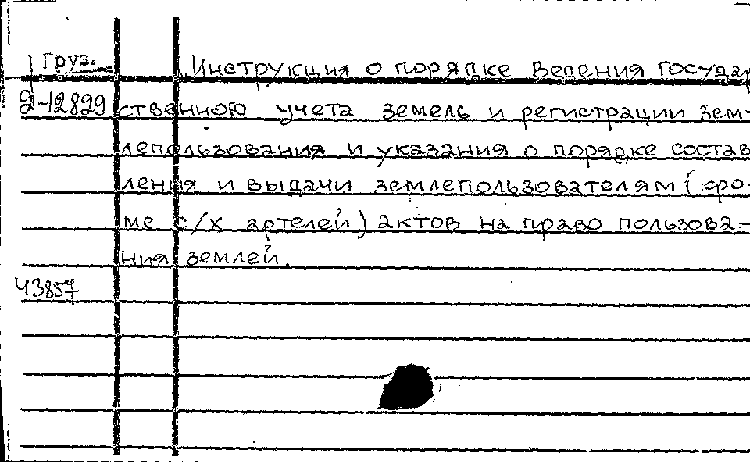 Груз. Инструкция о порядке ведения государ
2-12829 ственного учета земель и регистрации зем-
лепользования и указания о порядке состав
ления и выдачи землепользователям (кро-
ме с/х артелей) актов на право пользова-
ния землей.
43857